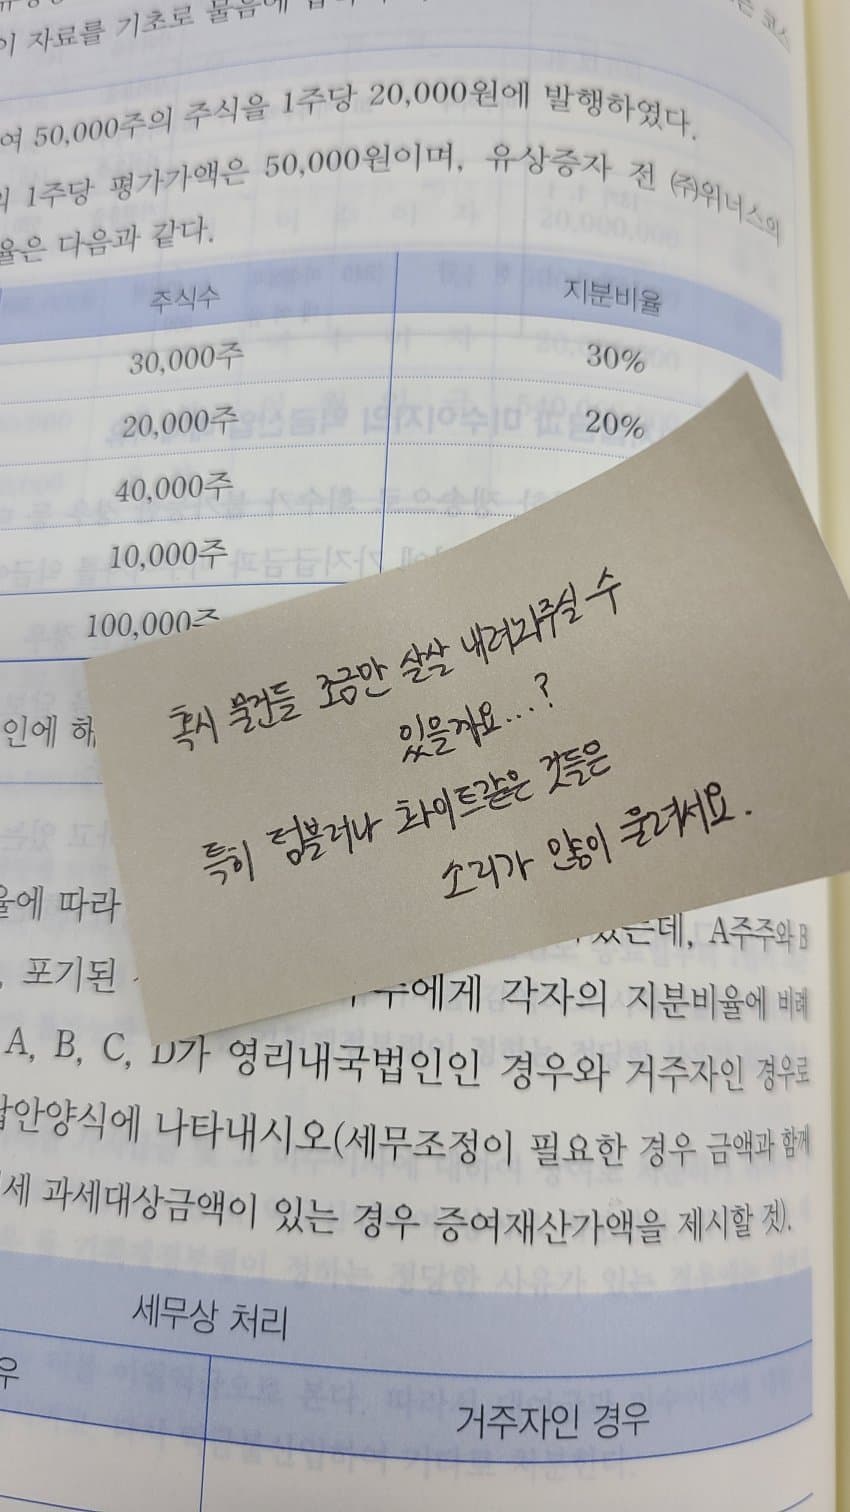 이 자료를 기초로 물음에
여 50,000주의 주식을 1주당 20,000원에 발행하였다.
의 1주당 평가가액은 50,000원이며, 유상증자 전 ㈜위너스의
율은 다음과 같다.
주식수 지분비율
30,000주 30%
20,000주 20%
40,000주
10,000주
100,000주
인에 해
혹시 물건들 조금만 살살 내려놔주실 수
있을까요...?
특히 텀블러나 화이트같은 것들은
소리가 많이 울려서요.
율에 따라
는데, A주주와 B
, 포기된
에게 각자의 지분비율에 비례
A, B, C, D가 영리내국법인인 경우와 거주자인 경우로
답안양식에 나타내시오(세무조정이 필요한 경우 금액과 함께
세 과세대상금액이 있는 경우 증여재산가액을 제시할 것).
세무상 처리
우 거주자인 경우